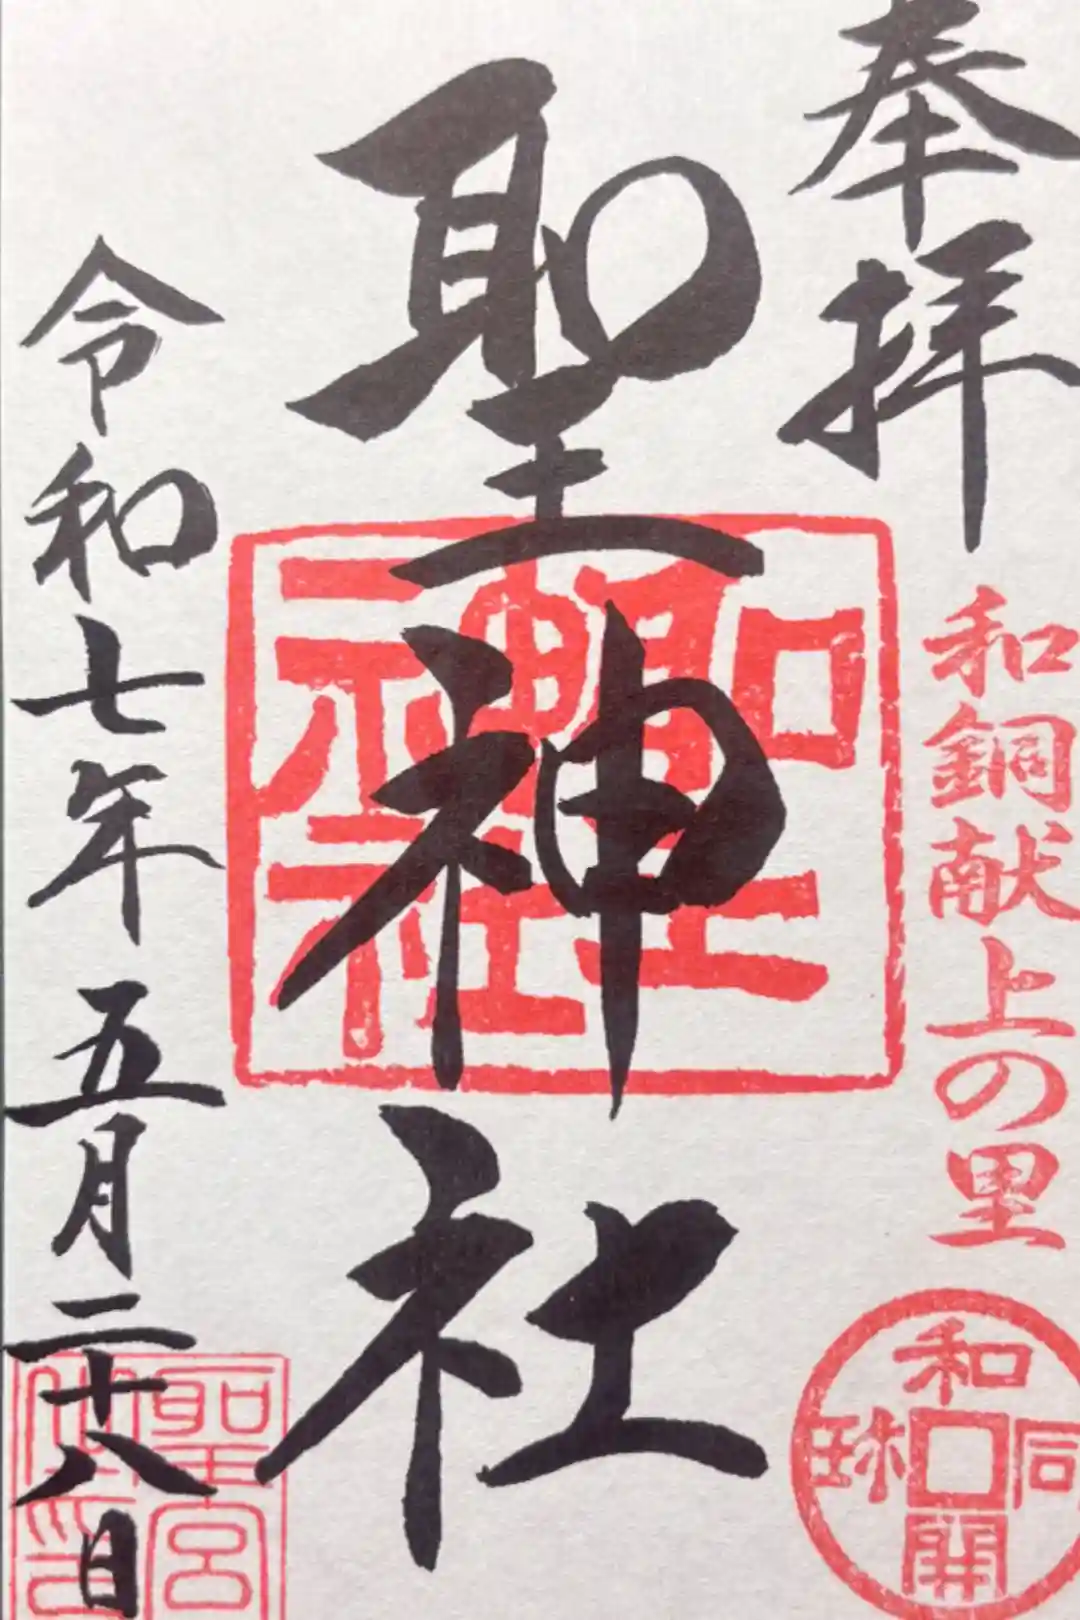 奉拝
和銅献上の里
和同開珎
聖神社
聖神社
令和七年五月二十八日
聖宮